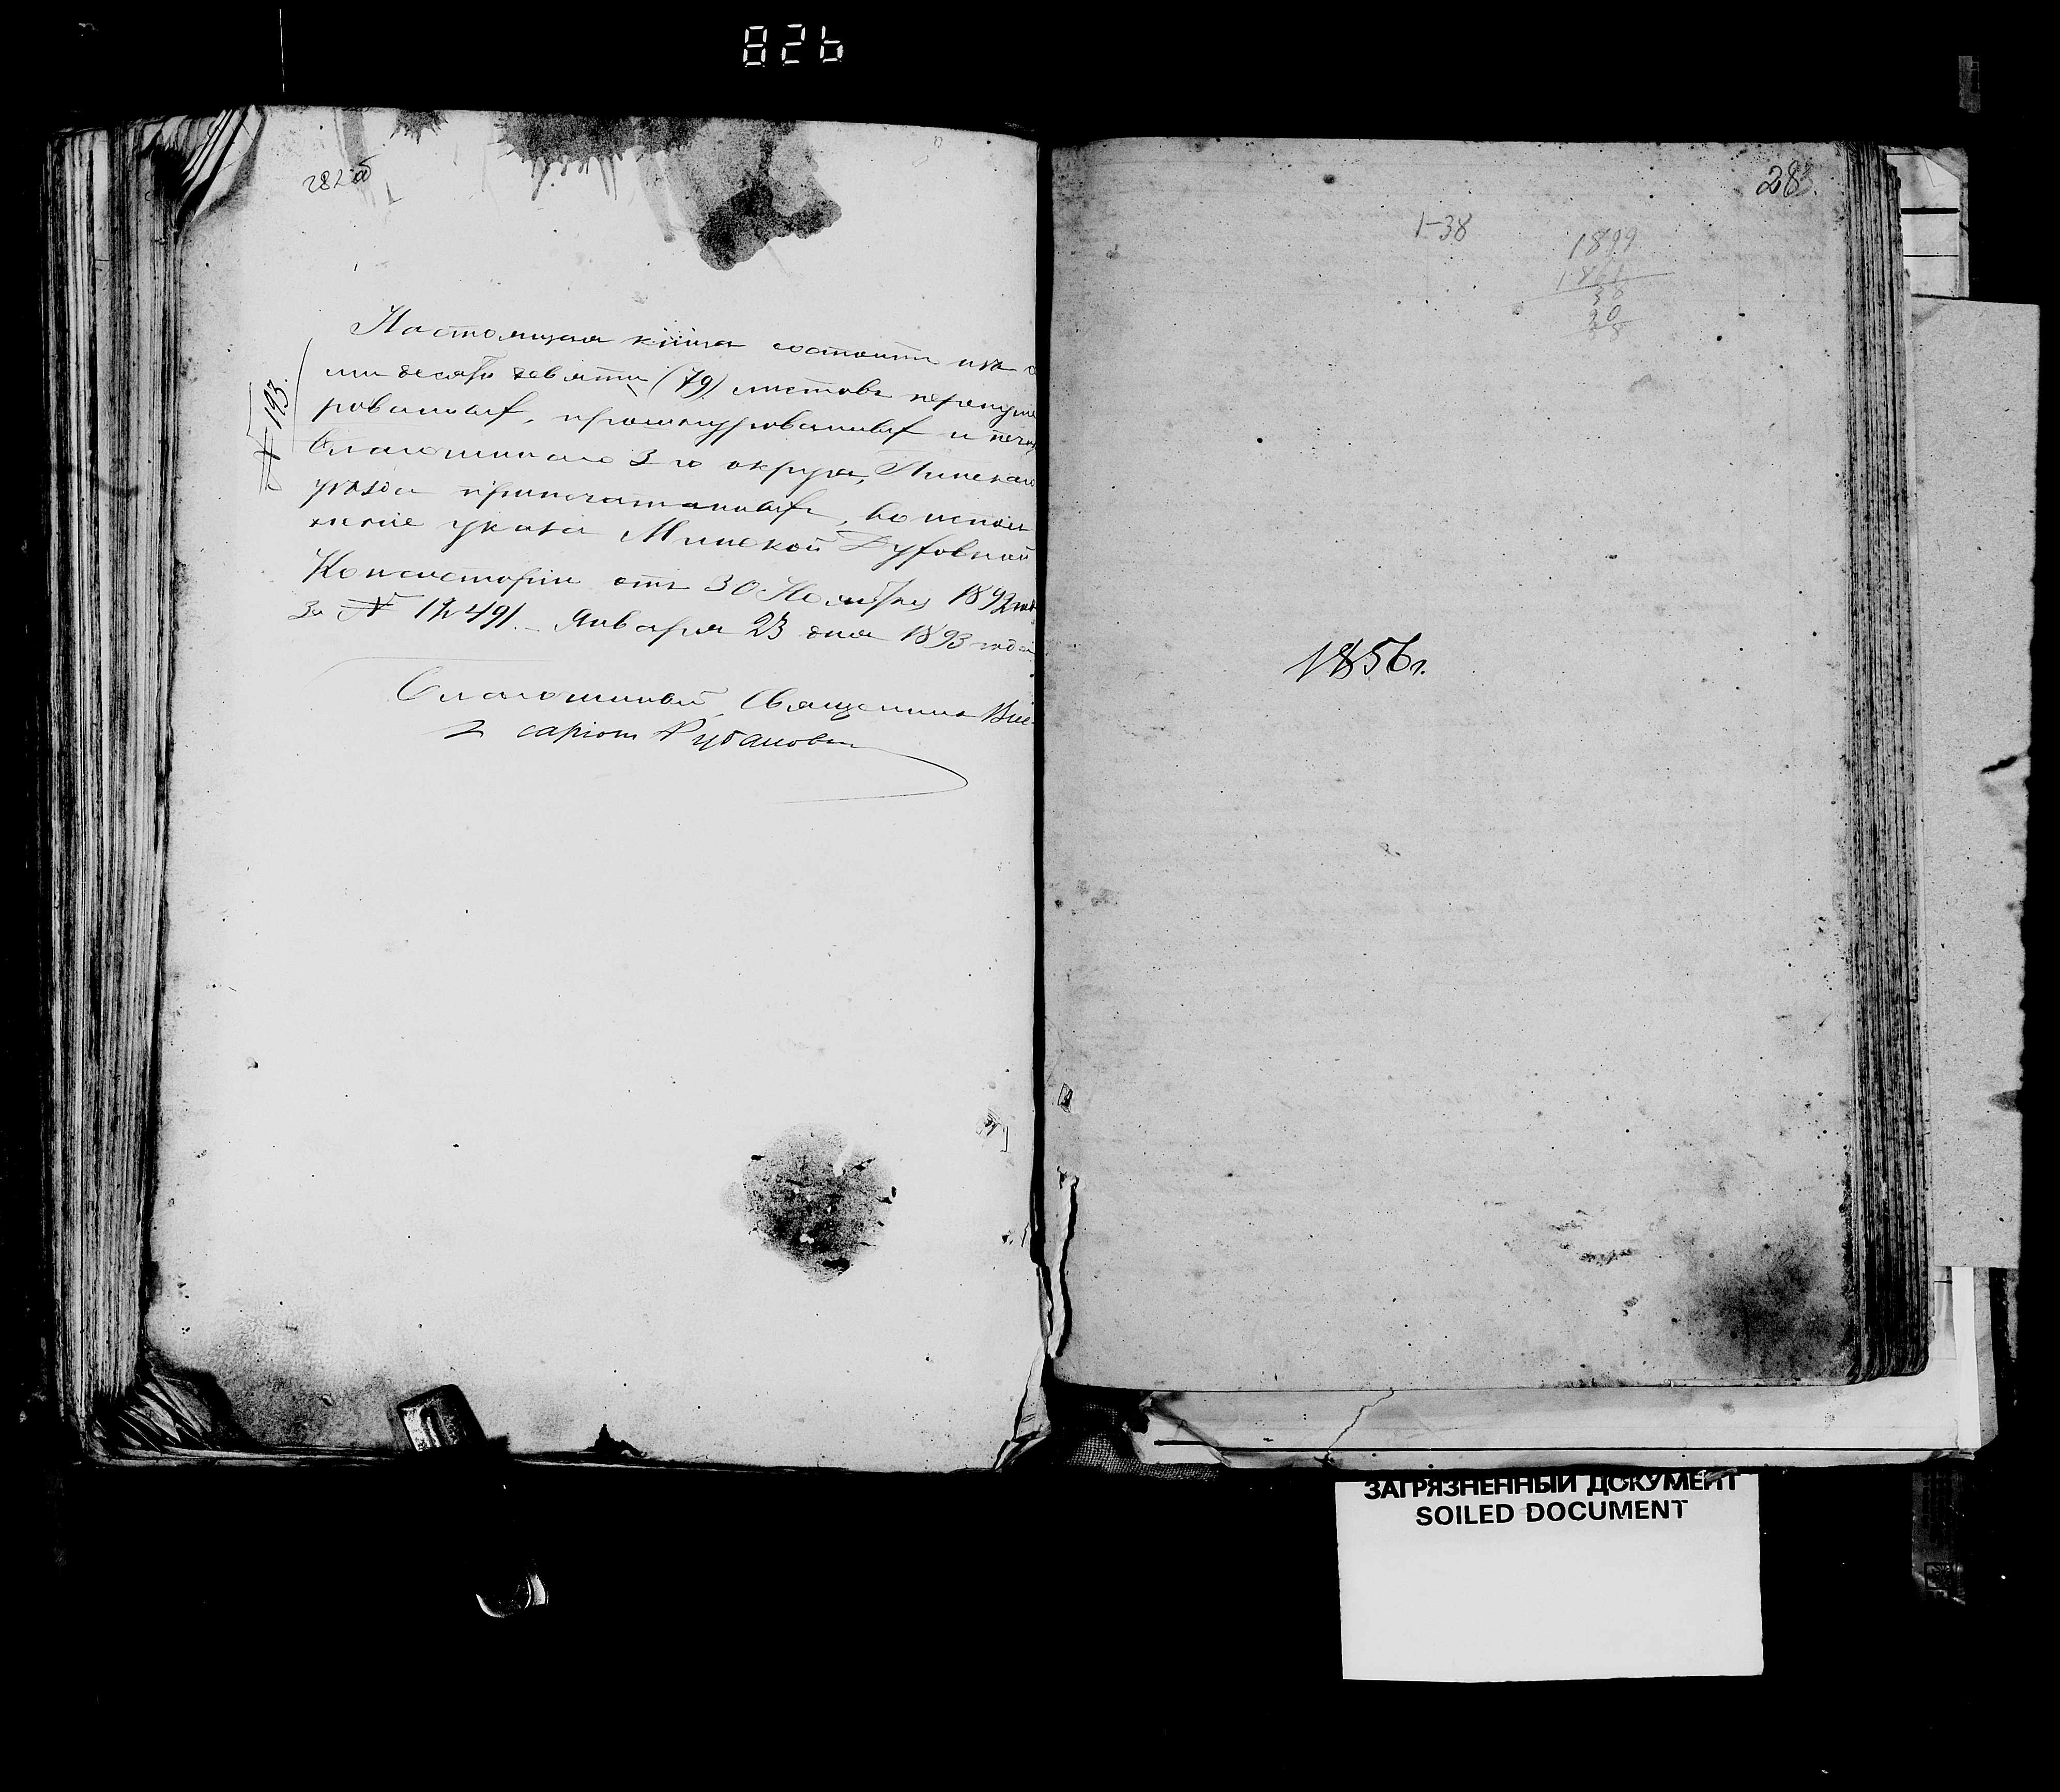 826
282 об
№ 193.
Настоящая книга состоитъ изъ
ми десяти девяти (79) листовъ перенуме
рованныхъ, прошнурованныхъ и печа
Благочиннаго 3 го округа, Пинскаго
уѣзда припечатанныхъ, во испол
неніе указа Минской Духовной
Консисторіи отъ 30 Ноября 1892 год
За № 12491. Января 23 дня 1893 года
Благочинный, Священникъ
Рубановичъ
283
1-38
1899
20
38
1856 г.
ЗАГРЯЗНЕННЫЙ ДОКУМЕНТ
SOILED DOCUMENT